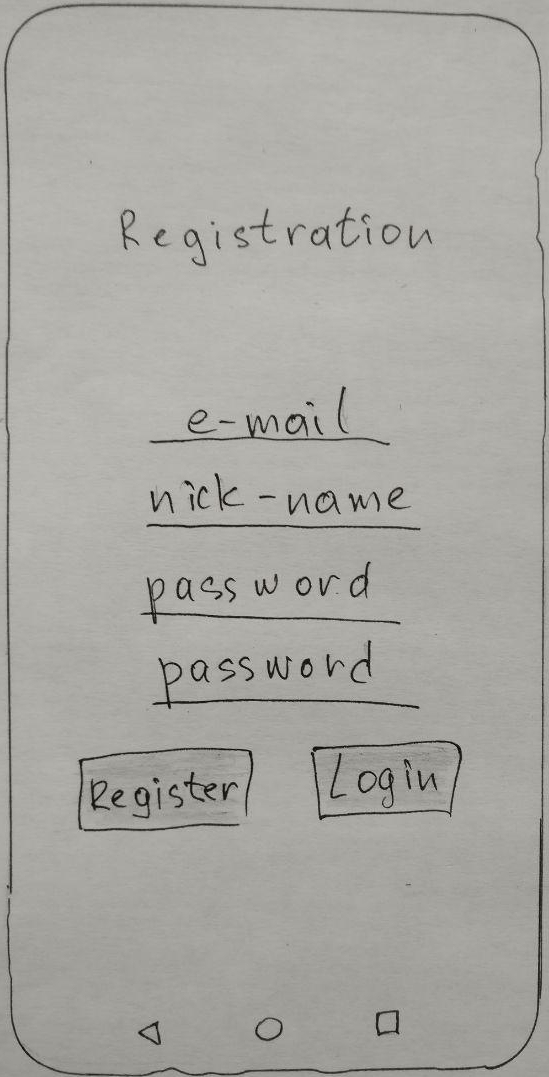 Registration
e-mail
nick-name
password
password
Register Login